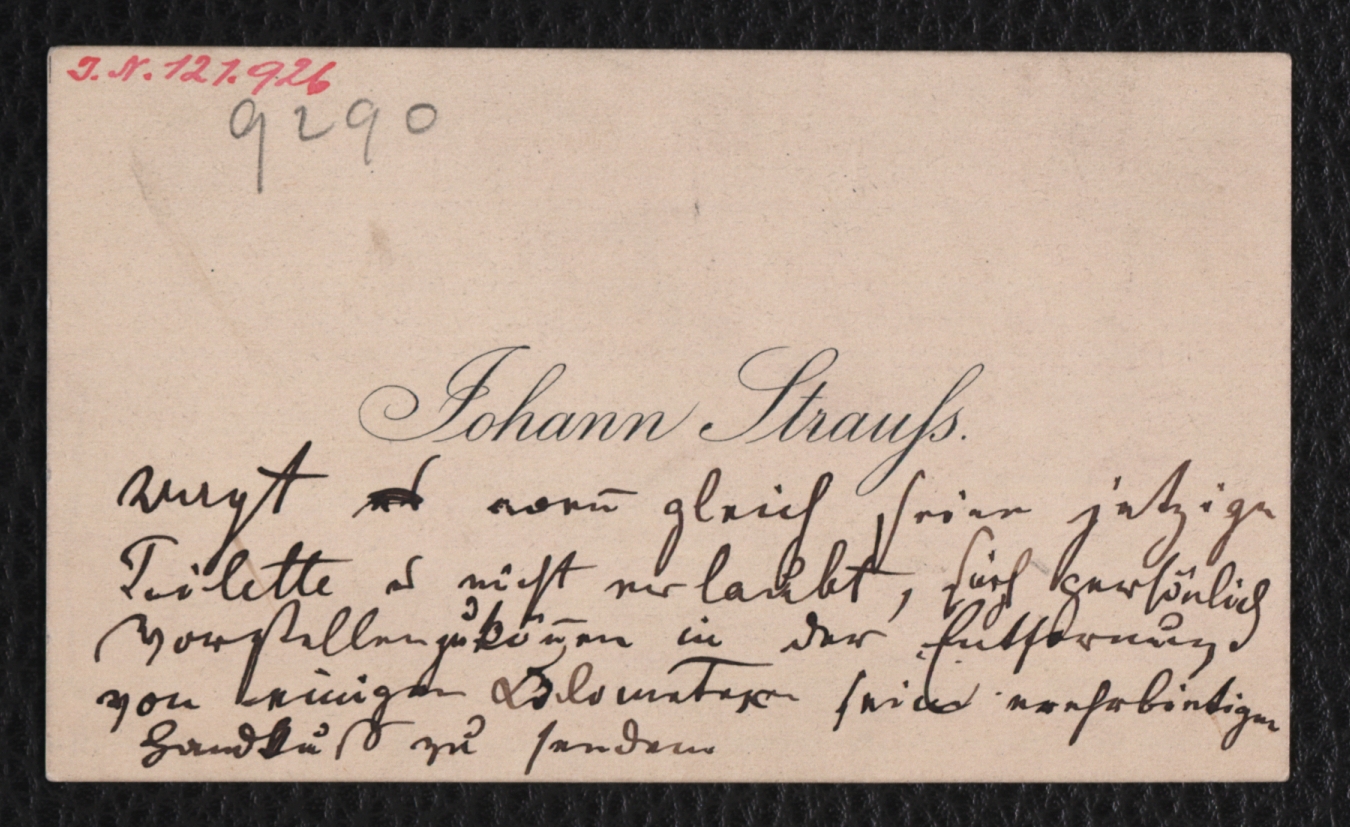 I.N. 121.926
9290
Johann Strauss.
wagt es wen̄ gleich seine jetzige
Toilette es nicht erlaubt, sich persönlich
Vorstellen zu kön̄en in der Entfernung
von einigen Kilometern seine ererbietigen
Handkuß zu senden